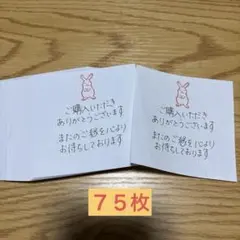 ご購入いただき
ありがとうございます
またのご縁を心より
お待ちしております
ご購入いただき
ありがとうございます
またのご縁を心より
お待ちしております
75枚